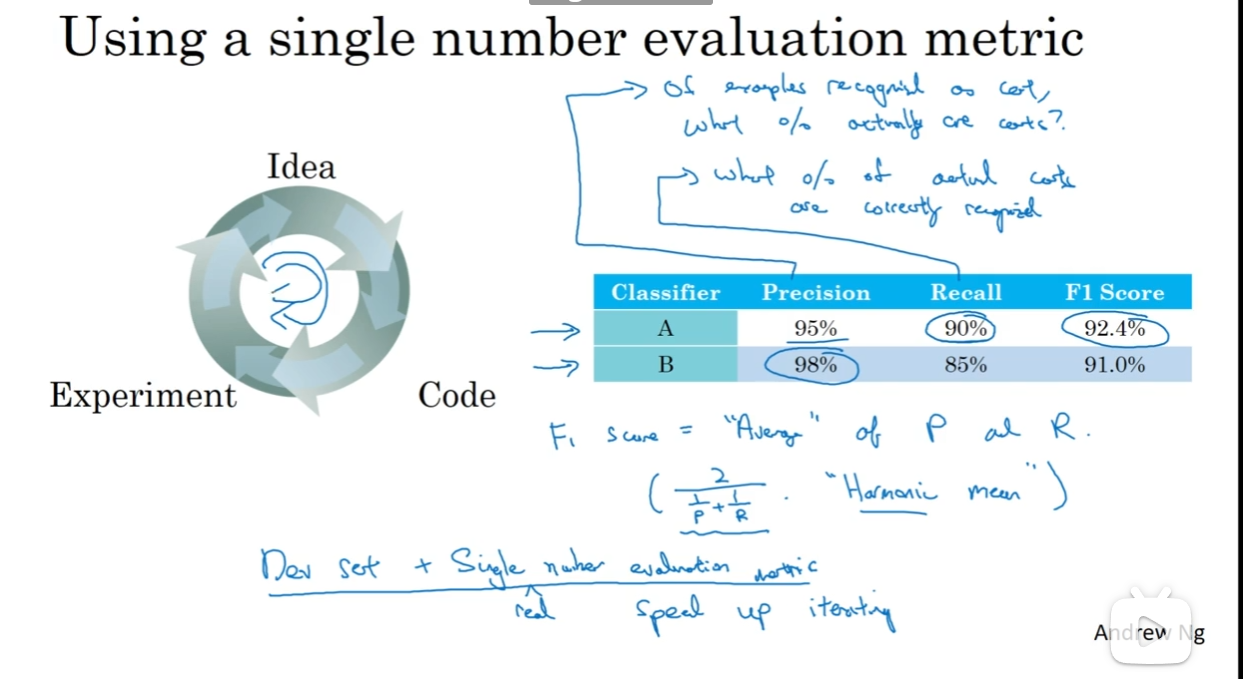 Using a single number evaluation metric
Of examples recognized as cat,
what % actually are cats?
what % of actual cats
are correctly recognized
Idea
Experiment
Code
Classifier Precision Recall F1 Score
A 95% 90% 92.4%
B 98% 85% 91.0%
F₁ score = "Average" of P and R.
( 2 / (1/P + 1/R) . "Harmonic mean" )
Dev set + Single number evaluation metric
real speed up iterating
Andrew Ng